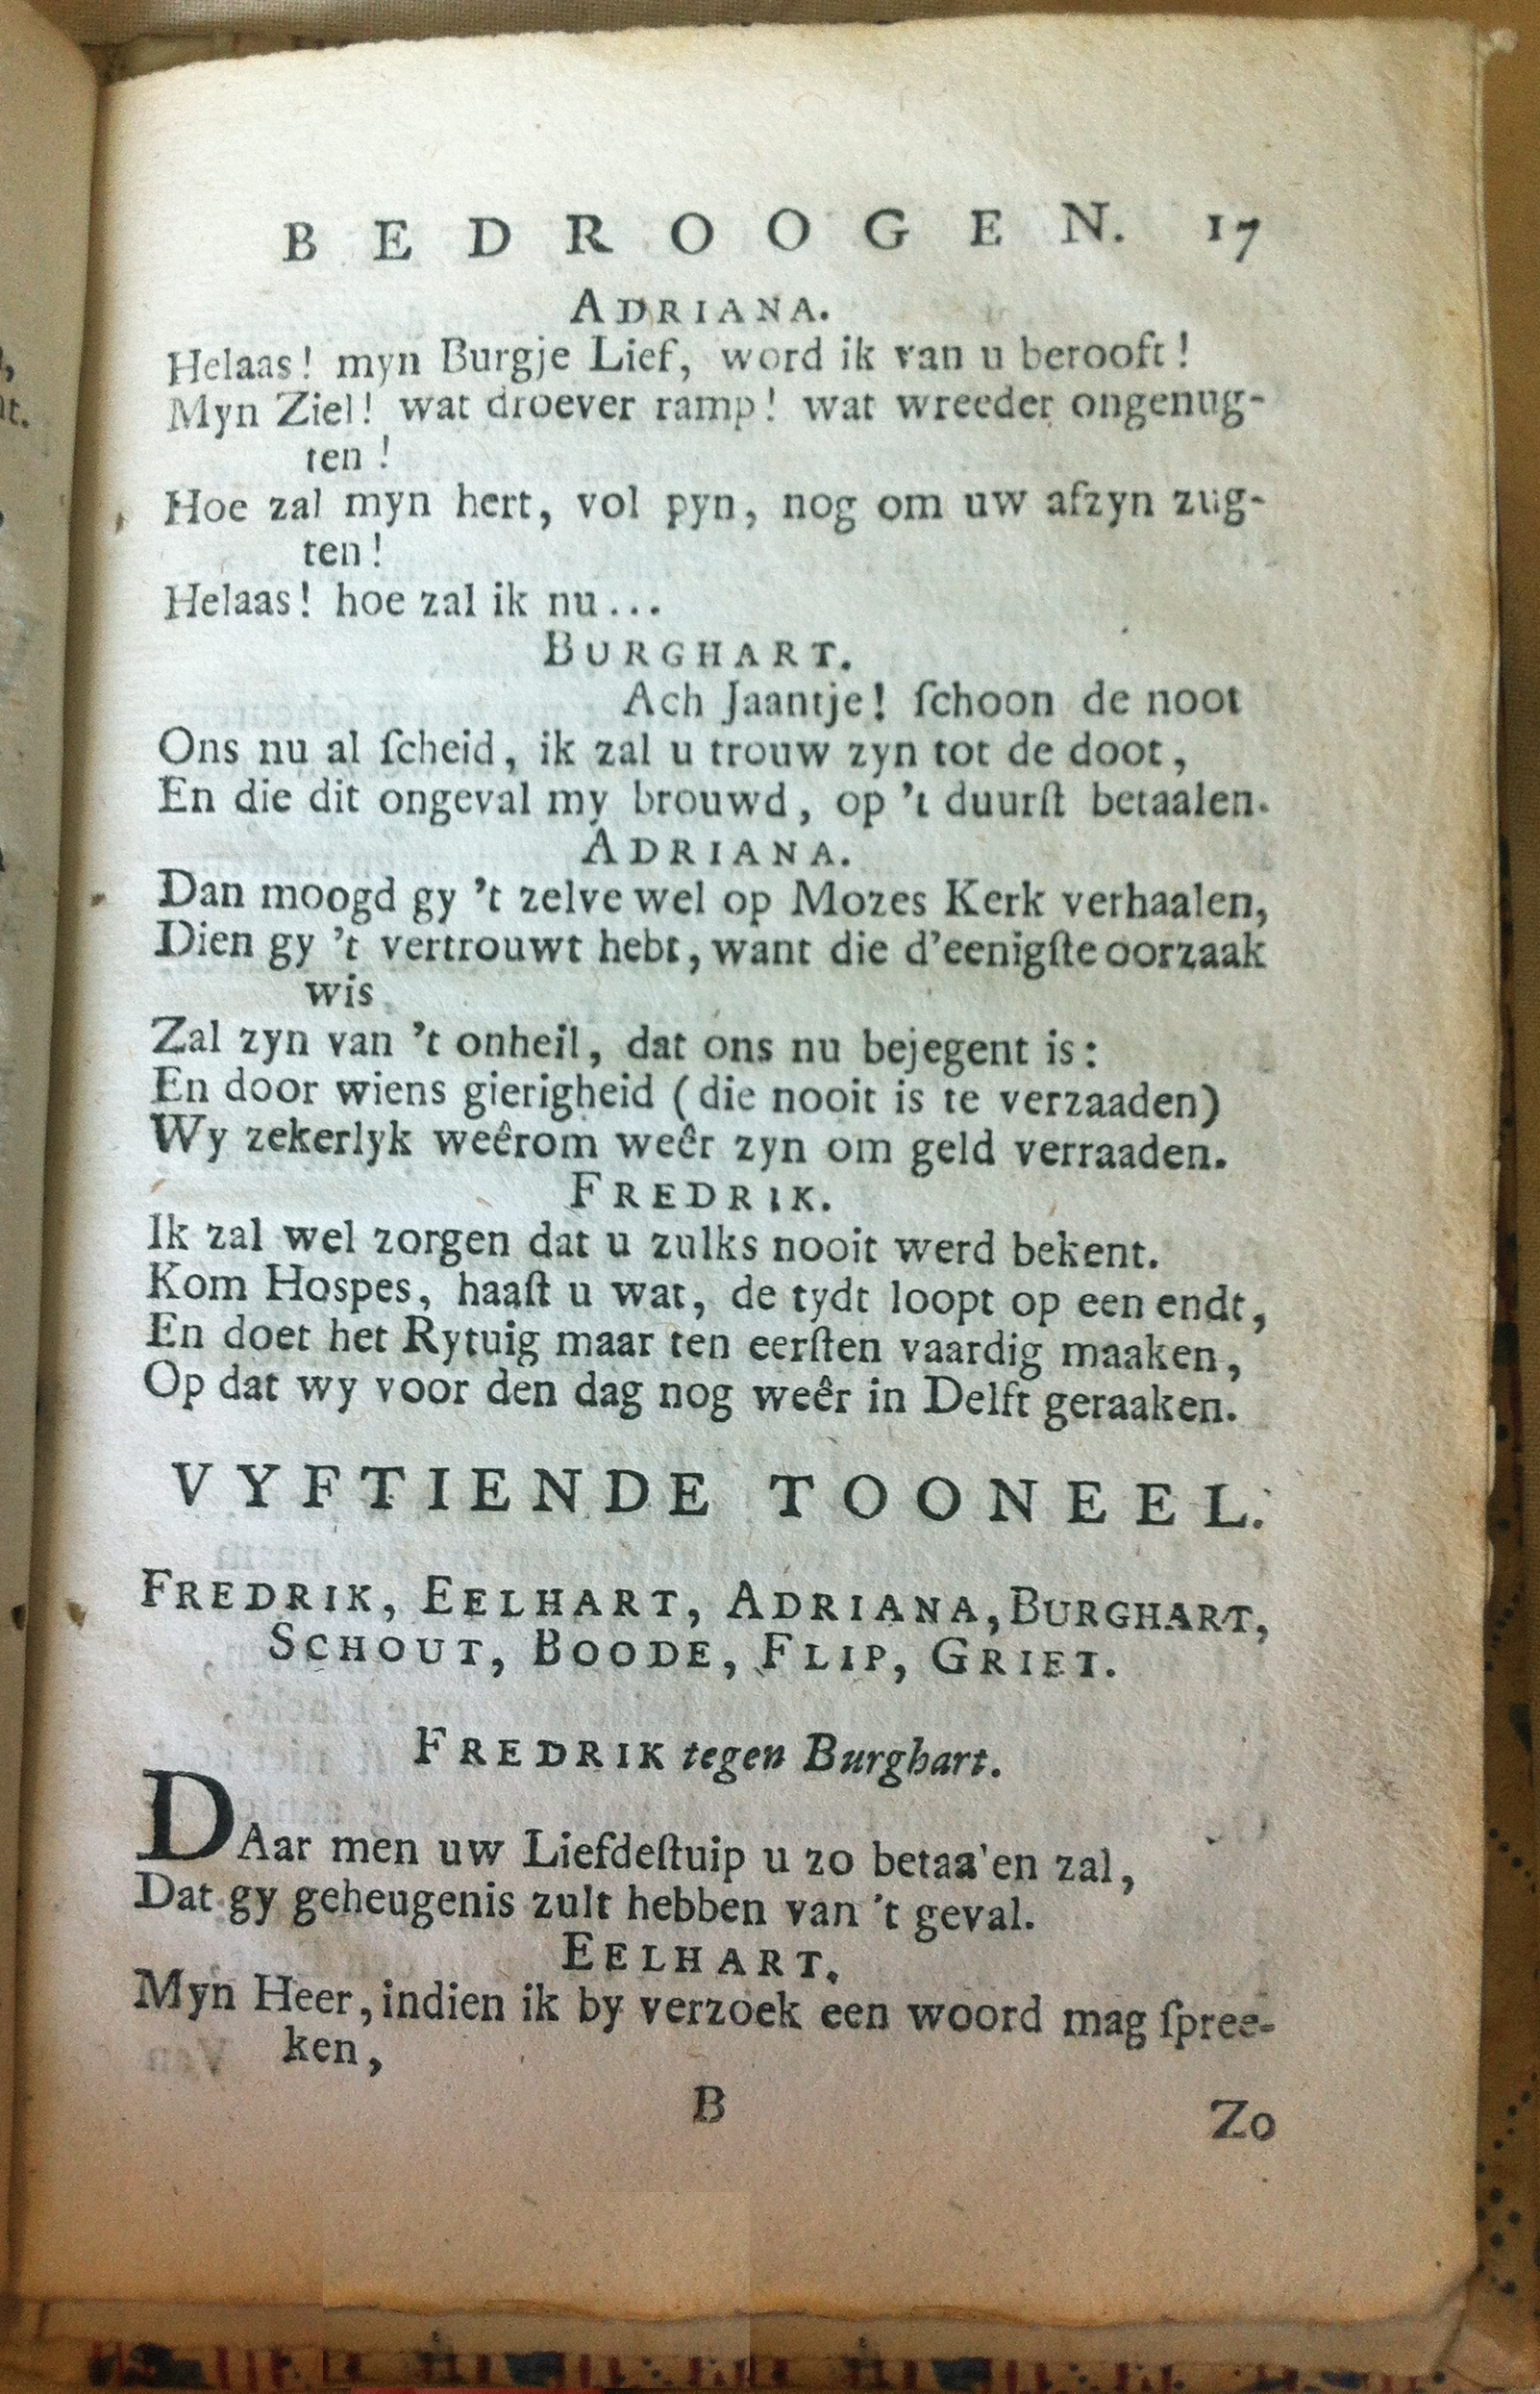 BEDROOGEN. 17
ADRIANA.
Helaas! myn Burgje Lief, word ik van u berooft!
Myn Ziel! wat droever ramp! wat wreeder ongenug-
ten!
Hoe zal myn hert, vol pyn, nog om uw afzyn zug-
ten!
Helaas! hoe zal ik nu...
BURGHART.
Ach Jaantje! ſchoon de noot
Ons nu al ſcheid, ik zal u trouw zyn tot de doot,
En die dit ongeval my brouwd, op 't duurſt betaalen.
ADRIANA.
Dan moogd gy 't zelve wel op Mozes Kerk verhaalen,
Dien gy 't vertrouwt hebt, want die d'eenigſte oorzaak
wis
Zal zyn van 't onheil, dat ons nu bejegent is:
En door wiens gierigheid (die nooit is te verzaaden)
Wy zekerlyk weêrom weêr zyn om geld verraaden.
FREDRIK.
Ik zal wel zorgen dat u zulks nooit werd bekent.
Kom Hospes, haaſt u wat, de tydt loopt op een endt,
En doet het Rytuig maar ten eerſten vaardig maaken,
Op dat wy voor den dag nog weêr in Delft geraaken.
VYFTIENDE TOONEEL.
FREDRIK, EELHART, ADRIANA, BURGHART,
SCHOUT, BOODE, FLIP, GRIET.
FREDRIK tegen Burghart.
DAar men uw Liefdeſtuip u zo betaa'en zal,
Dat gy geheugenis zult hebben van 't geval.
EELHART.
Myn Heer, indien ik by verzoek een woord mag ſpree-
ken,
B Zo